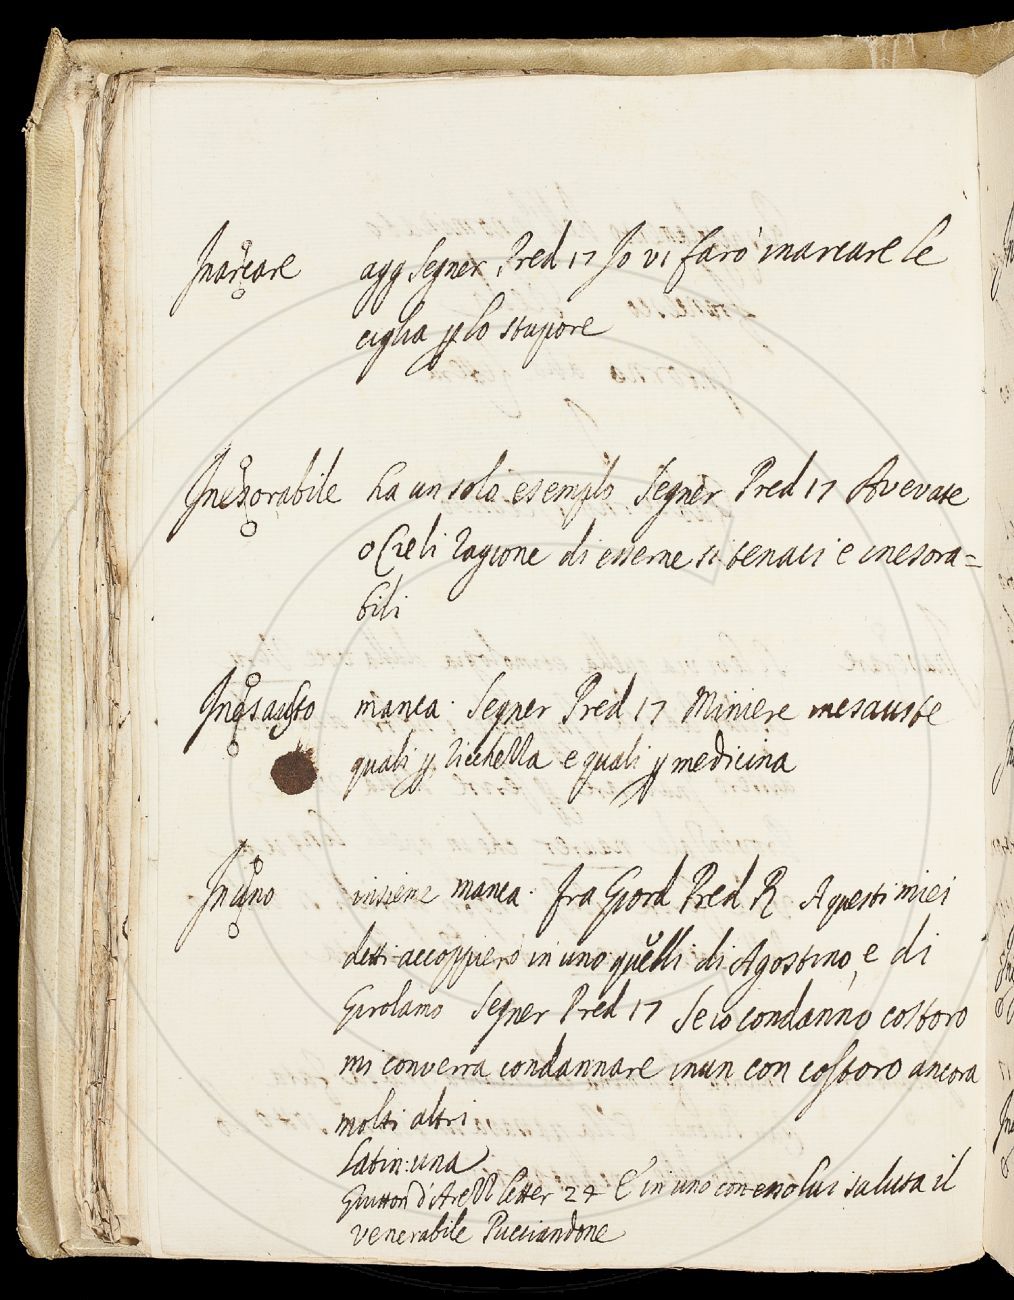 Inarcare agg Segner Pred 17 Io vi farò inarcare le
ciglia ꝑ lo stupore
Inesorabile ha un solo esempio Segner Pred 17 Avevate
o Cieli ragione di esserne si tenaci e inesora=
bili
Inesausto manca. Segner Pred 17 Miniere inesauste
quali ꝑ ricchezza e quali ꝑ medicina
In uno insieme manca. fra Giord Pred R A questi miei
detti accoppierò in uno quelli di Agostino, e di
Girolamo Segner Pred 17 Se io condanno costoro
mi converra condannare in un con costoro ancora
molti altri
Latin: una
Guitton d'Arezz Letter 24 E in uno con esso lui saluta il
venerabile Pucciandone